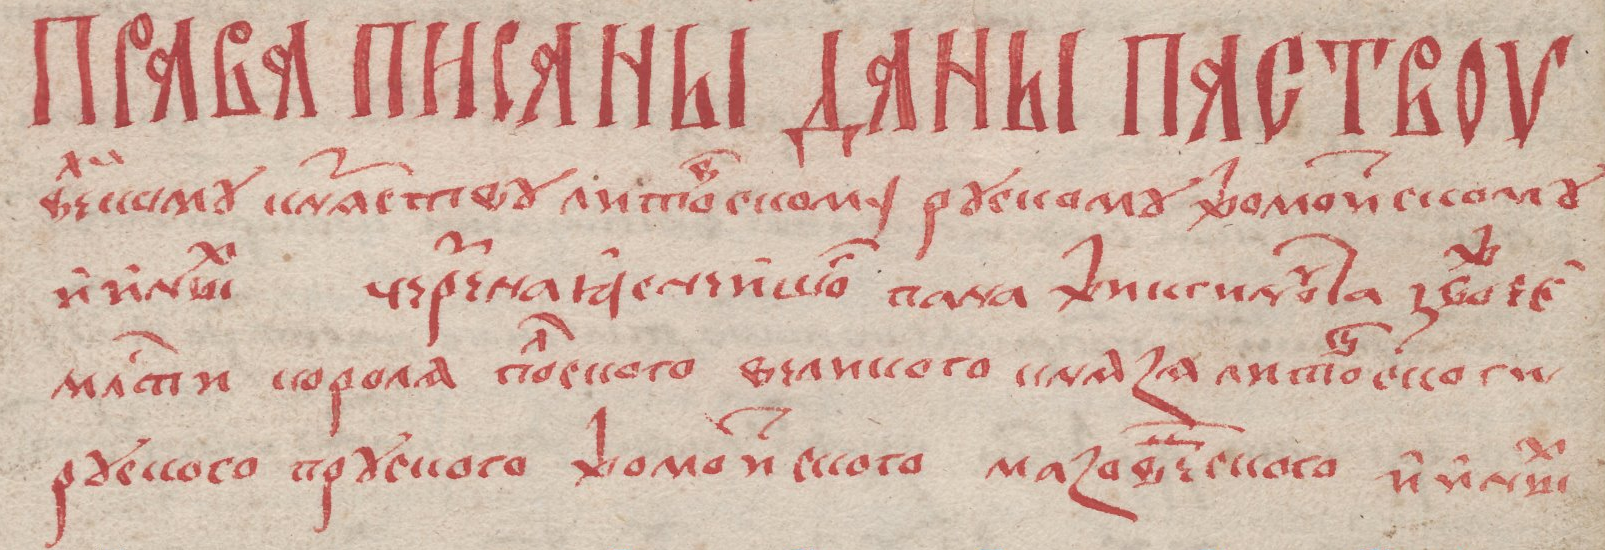 ПРАВА ПИСАНЫ ДАНЫ ПАСТВОУ
вел҃комꙋ кнѧⷵствꙋ литоⷡскому рꙋскомꙋ жомоитскомꙋ
и иншиⷯ чере наꙗснейшоⷢ пана жикгимоⷩта з божеⷤе
млⷭти королѧ поⷧского великого кнѧзѧ литоⷡского
рꙋского прꙋского жомоитского мазовецского и иншиⷯ